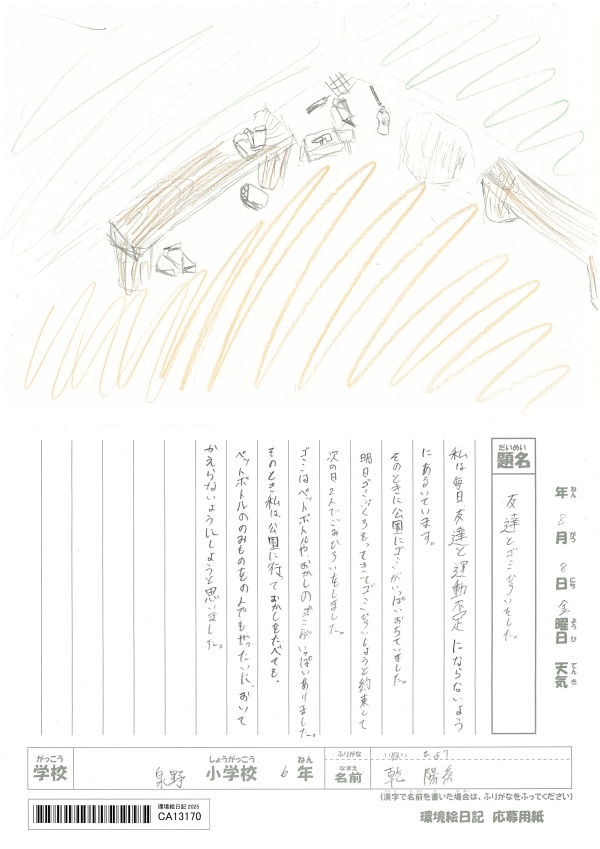 年 8月 8日 金曜日 天気
ねん がつ にち ようび てんき
だいめい
題名
友達とゴミひろいをした。
私は毎日友達と運動不足にならないよう
にあるいています。
そのときに公園にゴミがいっぱいおちていました。
明日ゴミぶくろもってきてゴミひろいしようと約束して
次の日2人でごみひろいをしました。
ゴミはペットボトルや、おかしのゴミがいっぱいありました。
そのとき私は、公園に行っておかしをたべても、
ペットボトルののみものをのんでもぜったいに、おいて
かえらないようにしようと思いました。
がっこう しょうがっこう ねん ふりがな
学校 泉野 小学校 6年
なまえ
名前 乾 陽
(漢字で名前を書いた場合は、ふりがなをふってください)
環境絵日記 2025
CA13170
環境絵日記 応募用紙